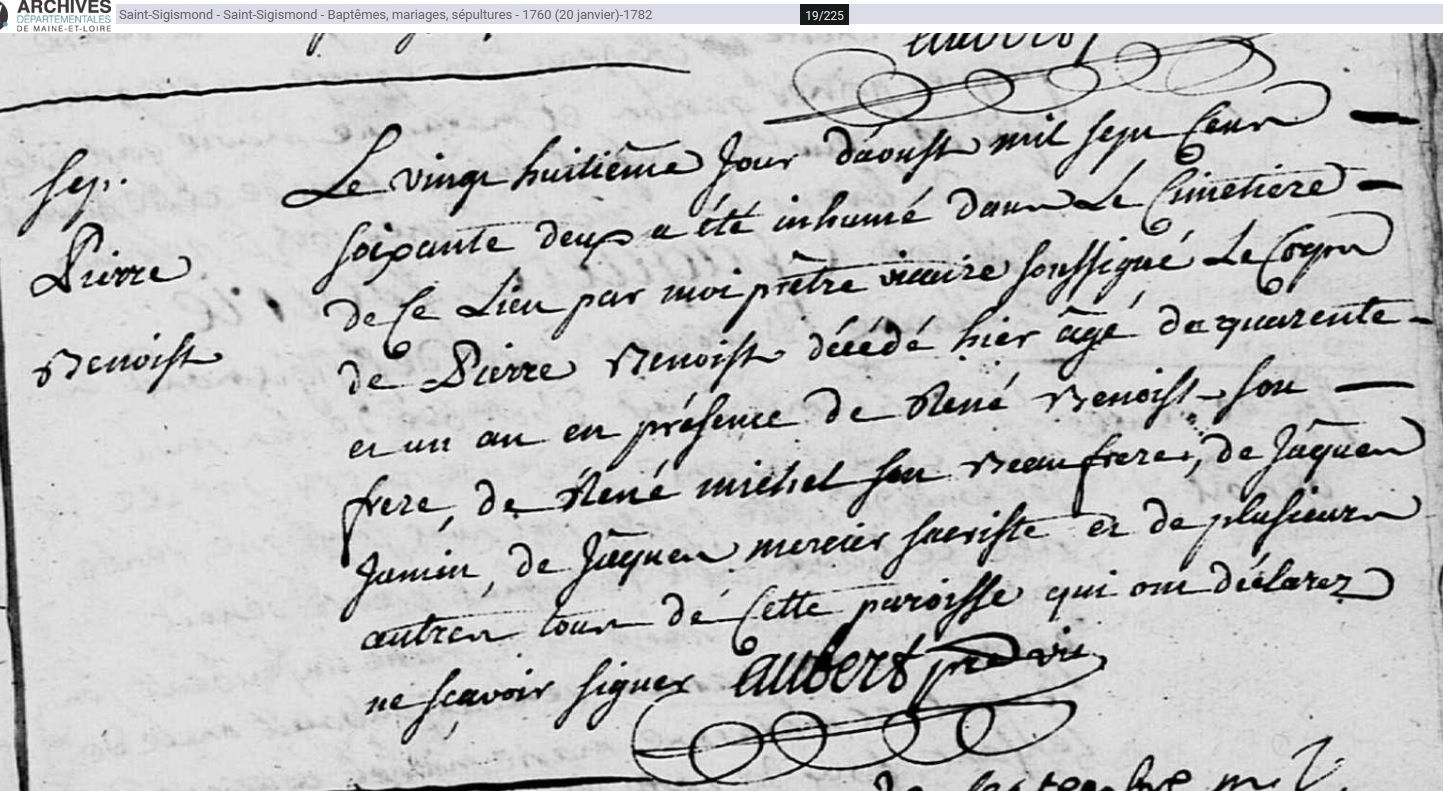 ARCHIVES
DÉPARTEMENTALES
DE MAINE-ET-LOIRE
Saint-Sigismond - Saint-Sigismond - Baptêmes, mariages, sépultures - 1760 (20 janvier)-1782
19/225
aubert
sep.
Pierre
Benoist
Le vingt huitième jour d'aoust mil sept Cent
soixante deux a été inhumé dans Le Cimetière
de Ce Lieu par moi prêtre vicaire soussigné Le Corps
de Pierre Benoist décédé hier âgé de quarente
et un an en présence de René Benoist son
frere, de René michel son Beaufrere, de Jâques
Jamin, de Jâques mercier sacriste et de plusieurs
autres tous de Cette paroisse qui ont déclarez
ne scavoir signer aubert pre vic
septembre mil